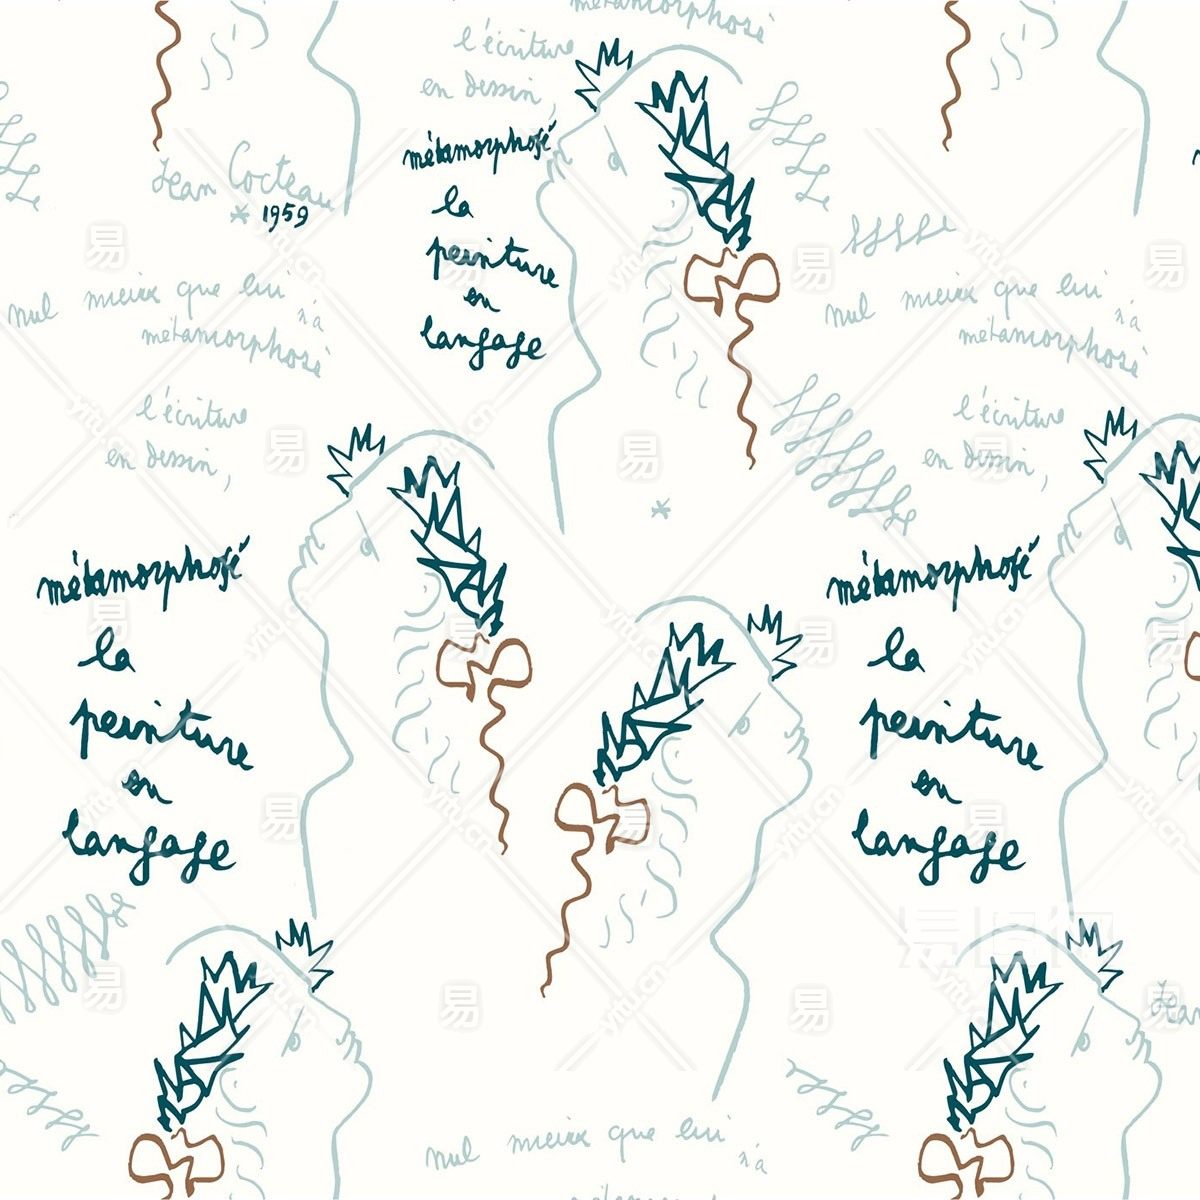 métamorphosé
l'écriture
en dessin,
métamorphosé
la
peinture
en
langage
Jean Cocteau
* 1959
nul mieux que lui
n'a
métamorphosé
l'écriture
en dessin,
nul mieux que lui
n'a
métamorphosé
l'écriture
en dessin,
métamorphosé
la
peinture
en
langage
métamorphosé
la
peinture
en
langage
Jean
nul mieux que lui
n'a
métamorphosé
易图网
yitu.cn